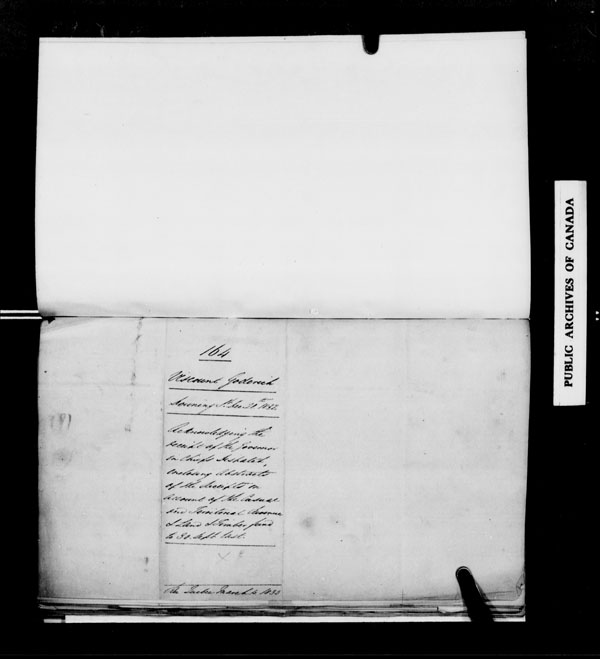 164
Viscount Goderich
Downing St. Dec 30th 1832
Acknowledging the
receipt of the Governor
in Chief's Despatch,
enclosing Abstracts
of the Receipts on
account of the Casual
and Territorial Revenue
& Land & Timber fund
to 30 Septr last.
Quebec March 4 1833
PUBLIC ARCHIVES OF CANADA